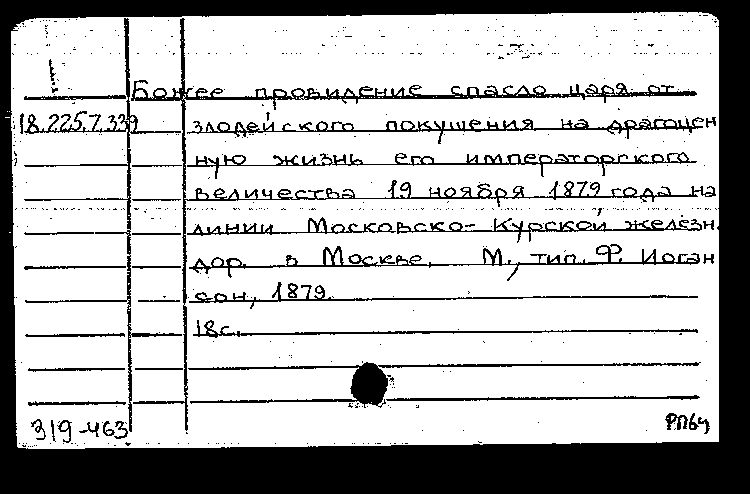 Божее провидение спасло царя от
18.225.7.339 злодейского покушения на драгоцен
ную жизнь его императорского
величества 19 ноября 1879 года на
линии Московско-Курской железн.
дор. в Москве. М., тип. Ф. Иоган
сон, 1879.
18с.
319-463 РПбч